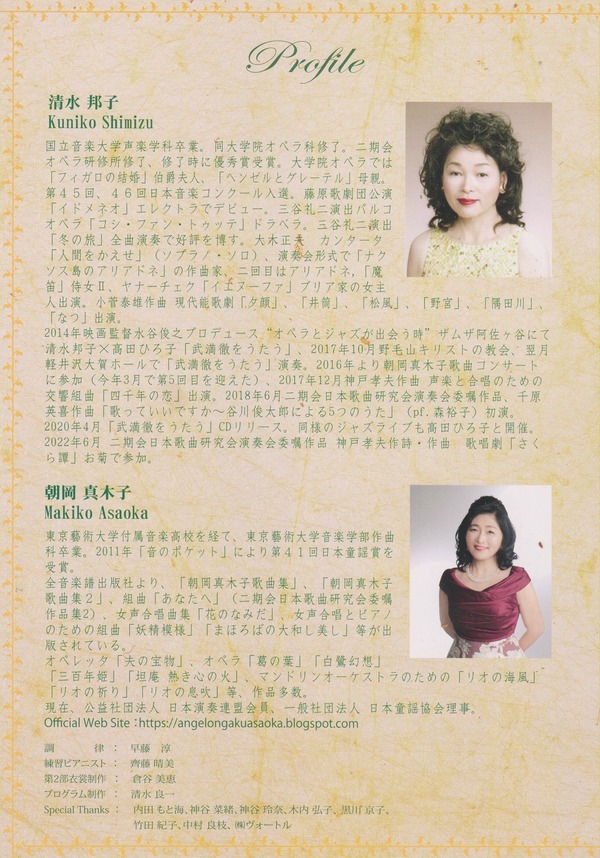 Profile
清水 邦子
Kuniko Shimizu
国立音楽大学声楽学科卒業。同大学院オペラ科修了。二期会
オペラ研修所修了、修了時に優秀賞受賞。大学院オペラでは
「フィガロの結婚」伯爵夫人、「ヘンゼルとグレーテル」母親。
第４５回、４６回日本音楽コンクール入選。藤原歌劇団公演
「イドメネオ」エレクトラでデビュー。三谷礼二演出パルコ
オペラ「コシ・ファン・トゥッテ」ドラベラ。三谷礼二演出
「冬の旅」全曲演奏で好評を博す。大木正夫 カンタータ
「人間をかえせ」（ソプラノ・ソロ）、演奏会形式で「ナク
ソス島のアリアドネ」の作曲家、二回目はアリアドネ，「魔
笛」侍女Ⅱ、ヤナーチェク「イエヌーファ」ブリア家の女主
人出演。小菅泰雄作曲 現代能歌劇「夕顔」、「井筒」、「松風」、「野宮」、「隅田川」、
「なつ」出演。
2014年映画監督水谷俊之プロデュース“オペラとジャズが出会う時”ザムザ阿佐ヶ谷にて
清水邦子×高田ひろ子「武満徹をうたう」、2017年10月野毛山キリストの教会、翌月
軽井沢大賀ホールで「武満徹をうたう」演奏。2016年より朝岡真木子歌曲コンサート
に参加（今年3月で第5回目を迎えた）、2017年12月神戸孝夫作曲 声楽と合唱のための
交響組曲「四千年の恋」出演。2018年6月二期会日本歌曲研究会演奏会委嘱作品、千原
英喜作曲「歌っていいですか～谷川俊太郎による5つのうた」（pf.森裕子）初演。
2020年4月「武満徹をうたう」CDリリース。同様のジャズライブも高田ひろ子と開催。
2022年6月 二期会日本歌曲研究会演奏会委嘱作品 神戸孝夫作詩・作曲 歌唱劇「さく
ら譚」お菊で参加。
朝岡 真木子
Makiko Asaoka
東京藝術大学付属音楽高校を経て、東京藝術大学音楽学部作曲
科卒業。2011年「音のポケット」により第４１回日本童謡賞を
受賞。
全音楽譜出版社より、「朝岡真木子歌曲集」、「朝岡真木子
歌曲集２」、組曲「あなたへ」（二期会日本歌曲研究会委嘱
作品集2）、女声合唱曲集「花のなみだ」、女声合唱とピアノ
のための組曲「妖精模様」「まほろばの大和し美し」等が出
版されている。
オペレッタ「夫の宝物」、オペラ「葛の葉」「白鷺幻想」
「三百年姫」「坦庵 熱き心の火」、マンドリンオーケストラのための「リオの海風」
「リオの祈り」「リオの息吹」等、作品多数。
現在、公益社団法人 日本演奏連盟会員、一般社団法人 日本童謡協会理事。
Official Web Site：https://angelongakuasaoka.blogspot.com
調 律 ： 早藤 淳
練習ピアニスト ： 齊藤 晴美
第2部衣裳制作 ： 倉谷 美恵
プログラム制作 ： 清水 良一
Special Thanks ： 内田 もと海、神谷 菜緒、神谷 玲奈、木内 弘子、黒川 京子、
竹田 紀子、中村 良枝、㈱ヴォートル